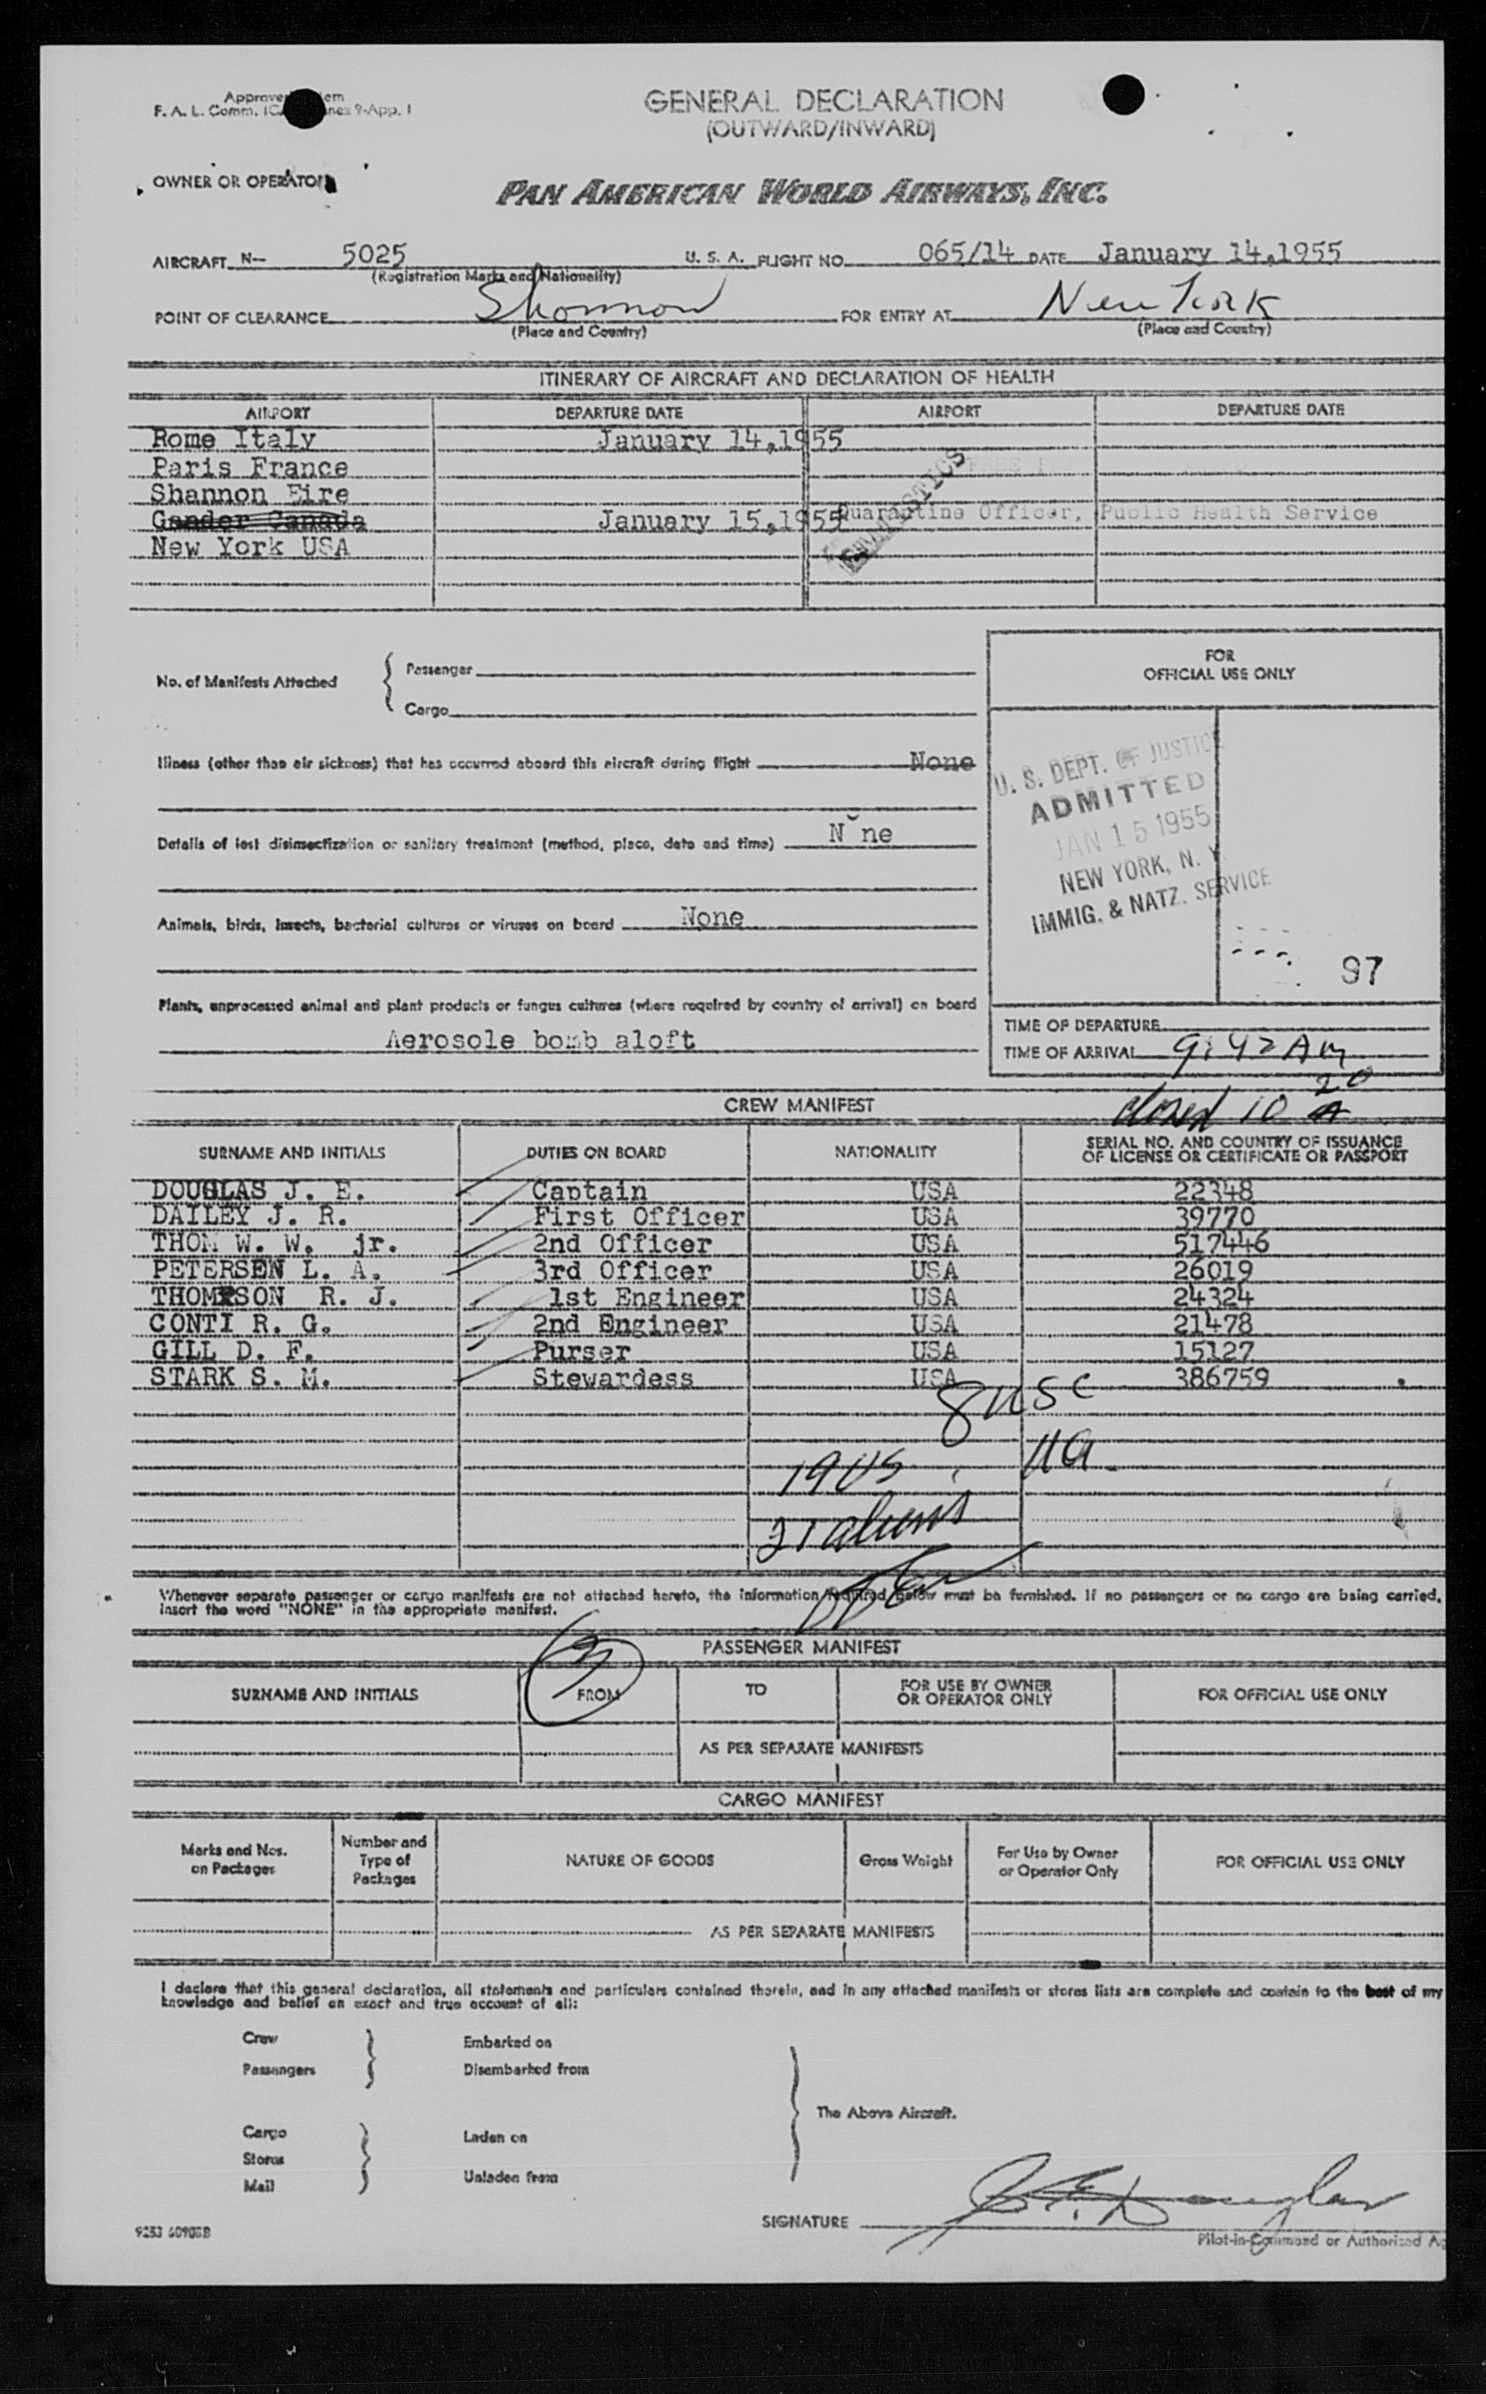 GENERAL DECLARATION
F. A. L. Comm.
(OUTWARD/INWARD)
OWNER OR OPERATOR
PAN AMERICAN WORLD AIRWAYS, INC.
AIRCRAFT N— 5025 U. S. A. FLIGHT NO. 065/14 DATE January 14,1955
(Registration Marks and Nationality)
POINT OF CLEARANCE Shannon FOR ENTRY AT New York
(Place and Country) (Place and Country)
ITINERARY OF AIRCRAFT AND DECLARATION OF HEALTH
AIRPORT DEPARTURE DATE AIRPORT DEPARTURE DATE
Rome Italy January 14,1955
Paris France
Shannon Eire
Gander Canada January 15,1955 Quarantine Officer, Public Health Service
New York USA
STATISTICS
FOR
OFFICIAL USE ONLY
No. of Manifests Attached { Passenger
Cargo
Illness (other than air sickness) that has occurred aboard this aircraft during flight None
Details of last disinsectization or sanitary treatment (method, place, date and time) None
Animals, birds, insects, bacterial cultures or viruses on board None
Plants, unprocessed animal and plant products or fungus cultures (where required by country of arrival) on board
Aerosole bomb aloft
U. S. DEPT. OF JUSTICE
ADMITTED
JAN 15 1955
NEW YORK, N. Y.
IMMIG. & NATZ. SERVICE
97
TIME OF DEPARTURE
TIME OF ARRIVAL 9:42 AM
closed 10 20 A
CREW MANIFEST
SURNAME AND INITIALS DUTIES ON BOARD NATIONALITY SERIAL NO. AND COUNTRY OF ISSUANCE
OF LICENSE OR CERTIFICATE OR PASSPORT
DOUGLAS J. E. Captain USA 22348
DAILEY J. R. First Officer USA 39770
THOM W. W. jr. 2nd Officer USA 517446
PETERSEN L. A. 3rd Officer USA 26019
THOMXSON R. J. 1st Engineer USA 24324
CONTI R. G. 2nd Engineer USA 21478
GILL D. F. Purser USA 15127
STARK S. M. Stewardess USA 386759
8 USC
19 US
21 aliens
Whenever separate passenger or cargo manifests are not attached hereto, the information required below must be furnished. If no passengers or no cargo are being carried,
insert the word "NONE" in the appropriate manifest.
PASSENGER MANIFEST
3
SURNAME AND INITIALS FROM TO FOR USE BY OWNER
OR OPERATOR ONLY FOR OFFICIAL USE ONLY
AS PER SEPARATE MANIFESTS
CARGO MANIFEST
Marks and Nos.
on Packages Number and
Type of
Packages NATURE OF GOODS Gross Weight For Use by Owner
or Operator Only FOR OFFICIAL USE ONLY
AS PER SEPARATE MANIFESTS
I declare that this general declaration, all statements and particulars contained therein, and in any attached manifests or stores lists are complete and contain to the best of my
knowledge and belief an exact and true account of all:
Crew Embarked on
Passengers Disembarked from
The Above Aircraft.
Cargo Laden on
Stores
Mail Unladen from
SIGNATURE J. E. Douglas
Pilot-in-Command or Authorized